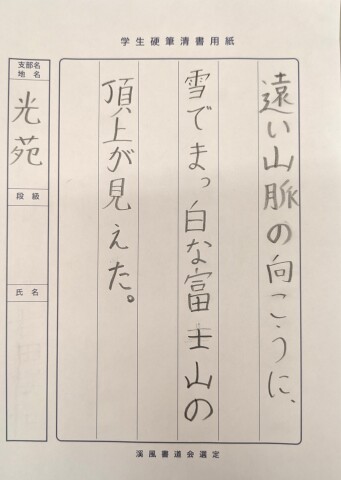 学生硬筆清書用紙
遠い山脈の向こうに、
雪でまっ白な富士山の
頂上が見えた。
支部名
地名
光苑
段級
氏名
溪風書道会選定